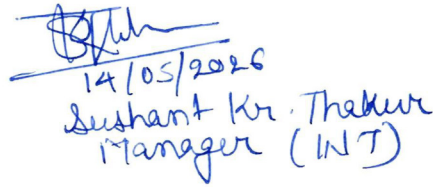 14/05/2026
Sushant Kr. Thakur
Manager (INT)